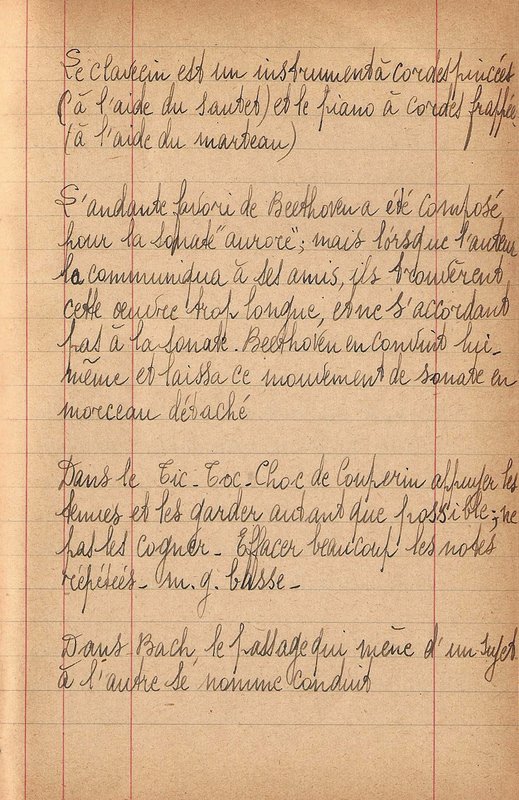 Le clavecin est un instrument à cordes pincées
(à l'aide du sautet) et le piano à cordes frappées
(à l'aide du marteau)
L'andante favori de Beethoven a été composé
pour la sonate "aurore"; mais lorsque l'auteur
la communiqua à ses amis, ils trouvèrent
cette œuvre trop longue, et ne s'accordant
pas à la sonate. Beethoven en convint lui-
même et laissa ce mouvement de sonate en
morceau détaché
Dans le Tic-Toc-Choc de Couperin appuyer les
tenues et les garder autant que possible; ne
pas les cogner - Effacer beaucoup les notes
répétées - m. g. basse -
Dans Bach, le passage qui mène d'un sujet
à l'autre se nomme conduit